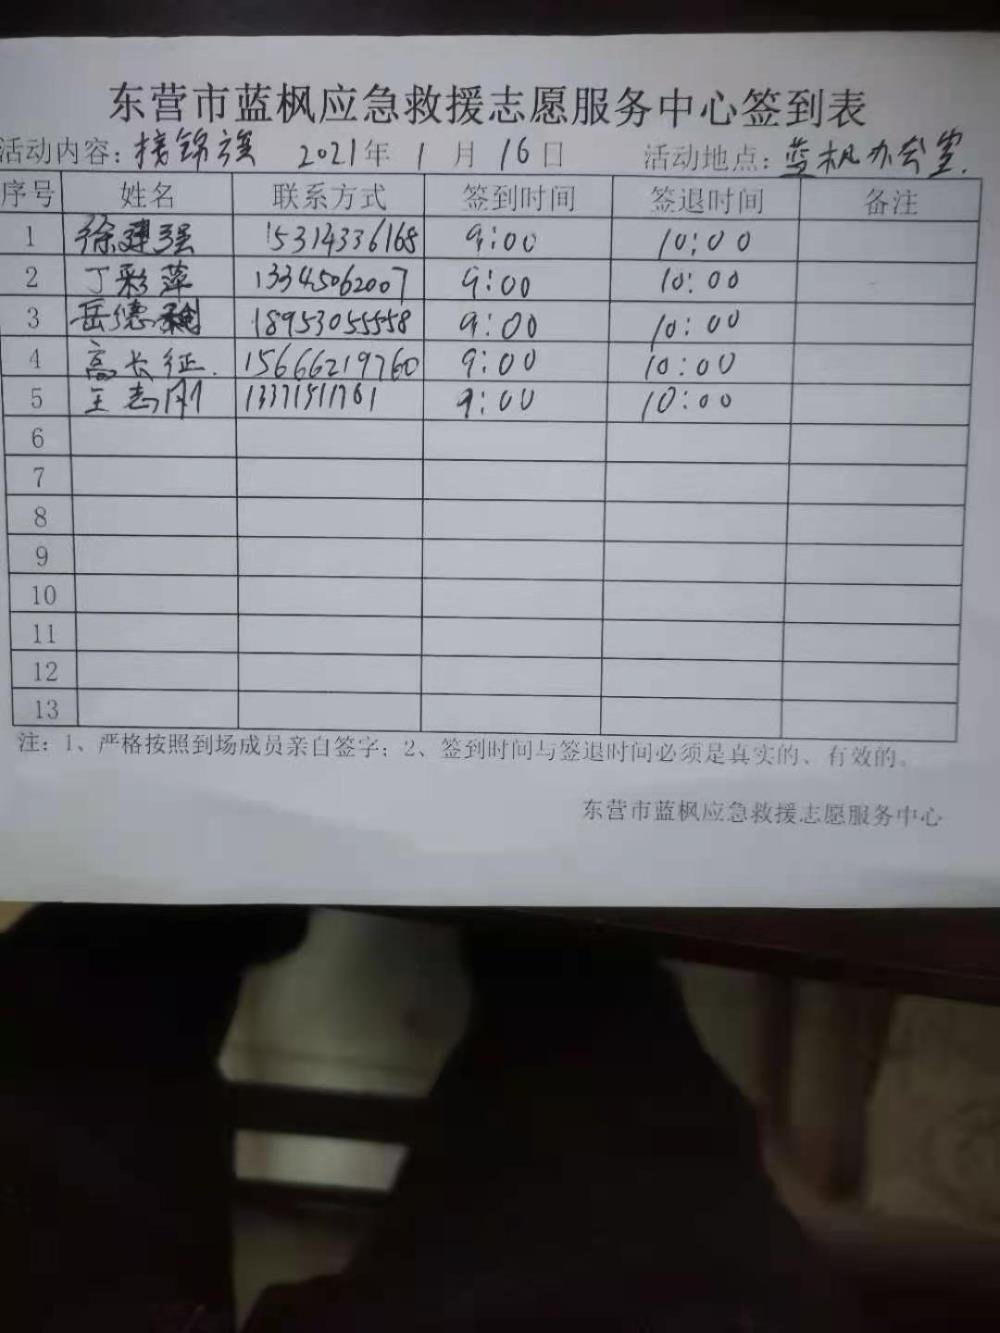 东营市蓝枫应急救援志愿服务中心签到表
活动内容：接锦旗 2021年 1 月 16 日 活动地点：蓝枫办公室.
序号 姓名 联系方式 签到时间 签退时间 备注
1 徐建强 15314336168 9:00 10:00
2 丁彩萍 13345062007 9:00 10:00
3 岳德 18953055558 9:00 10:00
4 高长征. 15666219760 9:00 10:00
5 王志刚 13371511761 9:00 10:00
6
7
8
9
10
11
12
13
注：1、严格按照到场成员亲自签字；2、签到时间与签退时间必须是真实的、有效的。
东营市蓝枫应急救援志愿服务中心